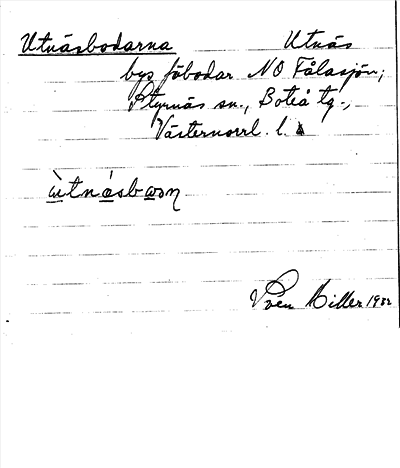 Utnäsbodarna Utnäs
bys fäbodar NO Fålasjön;
Styrnäs sn., Boteå tg.,
Västernorrl. l.
ùtnásbωσn
Sven Miller 1932